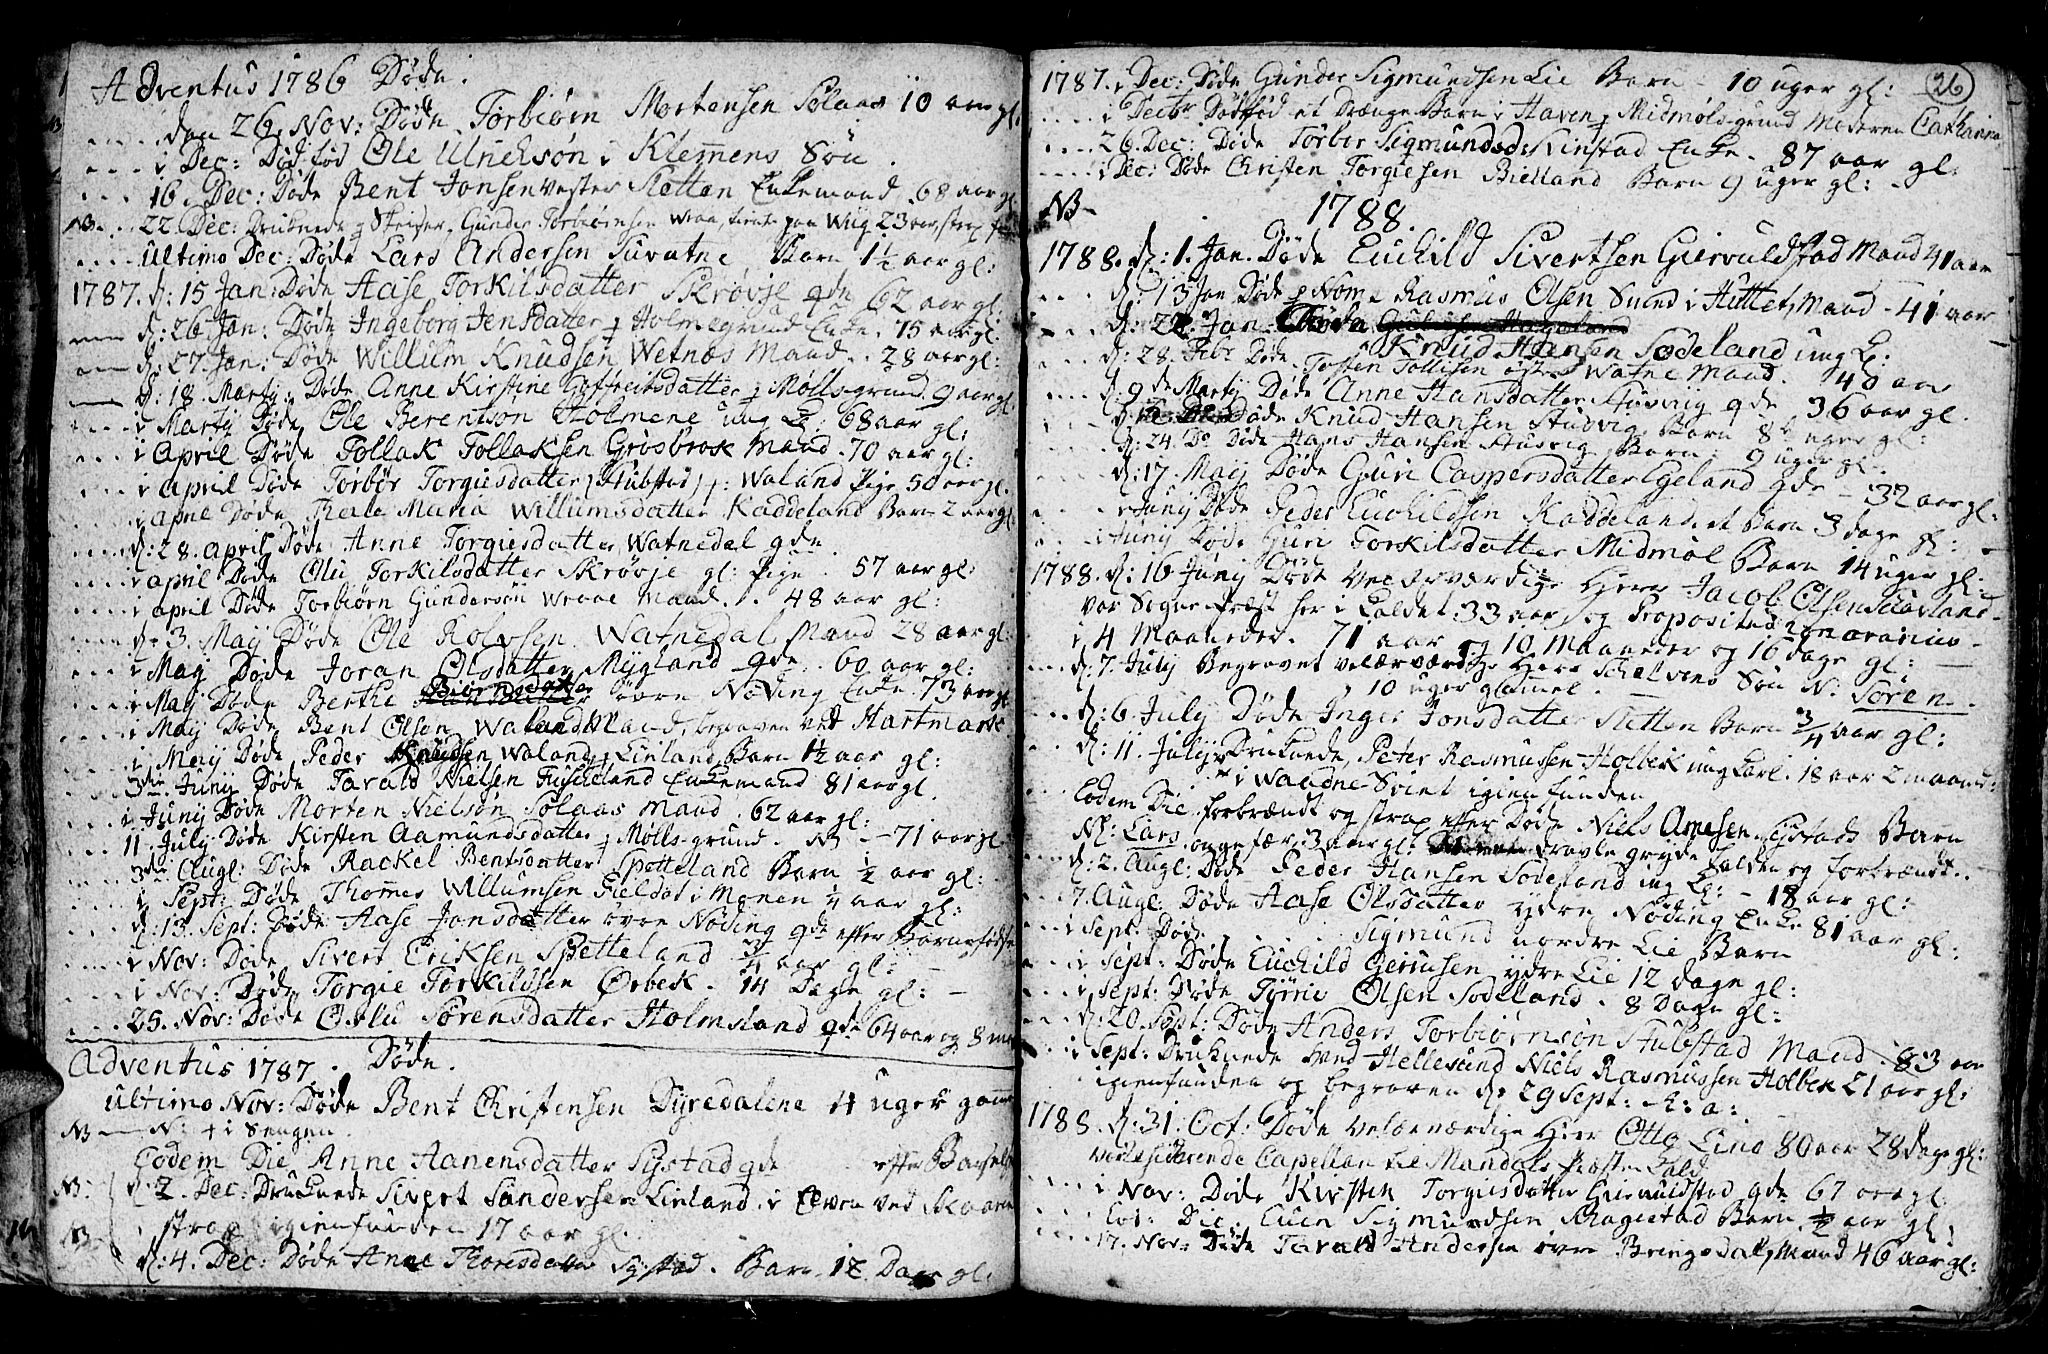 Adventus 1786 Døde.
den 26. Nov: Døde Torbiørn Mortensen Sølaas 10 aar gl.
i Dec: Død fød Ole Ulrichsøn i Klemens Søn
16. Dec: Døde Bent Jonsen vester Sletten Enkemand 68 aar gl
NB 22 Dec: Druknede Gunder Torbiørnsen Wraa, 23 aar, strax
ultimo Dec: Døde Lars Andersen Suvatne, Barn 1½ aar gl:
1787. d: 15 Jan: Døde Aase Torkilsdatter Skrøvje gde 62 aar gl:
d: 26 Jan: Døde Ingeborg Jensdatter Holmegrund Enke. 75 aar gl.
d: 27. Jan: Døde Willum Knudsen Wetnes Mand. 28 aar gl:
d: 18. Martÿ. Døde Anne Kirstine Gotfreitsdatter Mølls-grund. 9 aar gl.
i Martÿ Døde Ole Berentson Holmene ung K. 68 aar gl:
i April Døde Tollak Tollaksen Grosbrok Mand 70 aar gl:
i April Døde Torbør Torgiesdatter Stubstad, Waland Pige 50 aar gl.
i April Døde Maria Willumsdatter Kaddeland Barn 2 aar gl
d: 28. April Døde Anne Torgiesdatter Watnedal gde
i April Døde Olu Torkilsdatter Skrøvje gl: Pige 57 aar gl:
i april Døde Torbiørn Gundersøn Wraae Mand. 48 aar gl:
d. 3. Maÿ Døde Ole Rolvsen Watnedal Mand 28 aar gl:
i Maÿ Døde Joran Olsdatter Mÿgland gde. 60 aar gl:
i Maÿ Døde Berthe Nøding Enke. 73 aar gl
i Maÿ Døde Bent Olsen Waland Mand, begraven ved Hartmark
i Maÿ Døde Peder Knudsen Waland, Linland, Barn 1½ aar gl:
3die Junÿ Døde Tarald Nielsen Fuskeland Enkemand 81 aar gl
i Junÿ Døde Morten Nielsøn Sølaas Mand. 62 aar gl:
11. Julÿ Døde Kirsten Aamundsdatter Mølls-grund. NB - 71 aar gl
3die Augl: Døde Rackel Bentsdatter Spetteland Barn ½ aar gl:
i Sept: Døde Thomes Willumsen Fieldet i Monen ¼ aar gl:
d: 13. Sept: Døde Aase Jonsdatter ovre Nøding gde efter Barnefødse
i Nov: Døde Sivert Eriksen Spetteland ¾ aar gl:
i Nov: Døde Torgie Torkildsen Ørbek. 14 Dage gl:
25. Nov: Døde Oslu Sørensdatter Holmsland gde 64 aar og 8 m
Adventus 1787. Døde.
ultimo Nov: Døde Bent Christensen Dÿredalene 4 uger gam
NB i Sengen.
Eodem Die Anne Aanensdatter Sÿstad gde efter Barsel
NB: d: 2. Dec: Druknede Sivert Sandersen Linland. i Elven ved Skaaren
NB strax igienfunden 17 aar gl.
d: 4. Dec: Døde Anne Thoresdatter Sÿstad. Barn 12 Dage gl:
26
1787. i Dec: Døde Gunder Sigmundsen Lie Barn - 10 uger gl:
i Decbr Dødfød et Drænge Barn i Haven, Midmøls-grund Moderen Cathrina
26. Dec: Døde Torbør Sigmundsd: Kinstad Enke. 87 aar gl:
i Dec: Døde Christen Torgiesen Bielland Barn 9 uger gl:
NB 1788.
1788. d: 1. Jan. Døde Euchild Sivertsen Giervuldstad Mand 41 aar
d: 13 Jan Døde Rasmus Olsen Sund i Huttet, Mand - 41 aar
d: 22. Jan: Døde
Knud Hansen Sødeland ung K:
d: 28. Febr Døde Tosten Tollisen Watne Mand. 40 aar
d. 9de Martÿ Døde Anne Hansdatter Stusvig gde 36 aar gl.
Døde Knud Hansen Studvig, Barn 8 uger gl:
d: 24. Do Døde Hans Hansen Stusvig, Barn: 9 uger gl:
d: 17. Maÿ Døde Guri Caspersdatter Egeland gde - 32 aar gl:
i Junÿ Døde Peder Euchildsen Kaddeland. et Barn 3 dage gl:
i Junÿ Døde Guri Torkilsdatter Midmøl Barn 14 uger gl:
1788. d: 16 Junÿ Døde Velærværdige Herr Jacob Olsen Saavland
vor Sogne-Præst her i Kaldet 33 aar, og Propositus honorarius
i 4 Maaneder. 71 aar og 10 Maaneder og 16 dage gl:
d. 7. Julÿ Begravet velærværdige Herr Schelvens Søn N: Søren
10 uger gammel.
d: 6. Julÿ Døde Inger Jonsdatter Sletten Barn ¾ aar gl:
d: 11. Julÿ Druknede, Peter Rasmussen Holbek ung Karl. 18 aar 2 maaned:
i Waagne-Svint igienfunden
Eodem Die forbrændt og strax efter Døde Niels Arnesen Sÿstads Barn
N: Lars ongefær 3 aar gl: gryde Falden og forbrændt.
d: 2. Augl: Døde Peder Hansen Sødeland ung K: - 18 aar gl:
7. Augl. Døde Aase Olsdatter ÿdre Nøding Enke 81 aar gl:
i Sept: Døde Sigmund nordre Lie Barn
i Sept: Døde Euchild Gerruisen ÿdre Lie 12 dage gl:
i Sept: Døde Tørris Olsen Sødeland. 8 Dage gl:
d: 20. Sept: Døde Anders Torbiørnsøn Stubstad Mand. 83 aar
i Sept: Druknede ved Hellesund Niels Rasmussen Holbek 21 aar gl:
igienfunden og begraven d: 29 Sept: h: a:
1788. d: 31. Oct: Døde velærværdige Hierr Otto Lind 80 aar 28 dage gl:
Capellan til Mandals Præste Kald
i Nov: Døde Kirsten Torgiesdatter Giervuldstad gde 67 aar gl:
Eod: Die: Euen Sigmundsen Skagestad Barn ½ aar gl:
17. Nov: Døde Tarald Andersen ovre Bringsdal, Mand 46 aar gl: